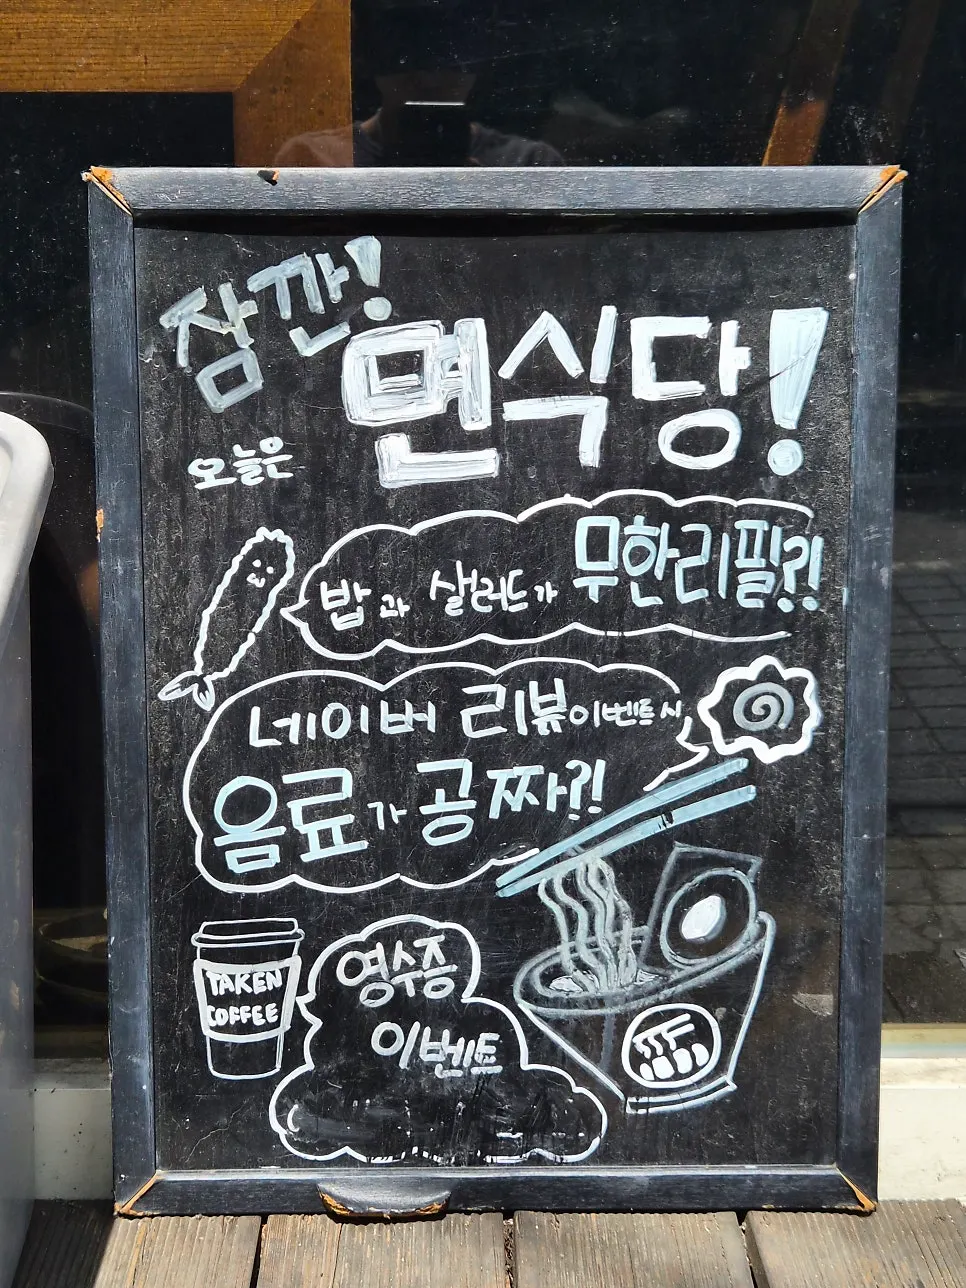 잠깐!
오늘은 면식당!
밥과 샐러드가 무한리필?!
네이버 리뷰이벤트 시
음료가 공짜?!
TAKEN
COFFEE
영수증
이벤트